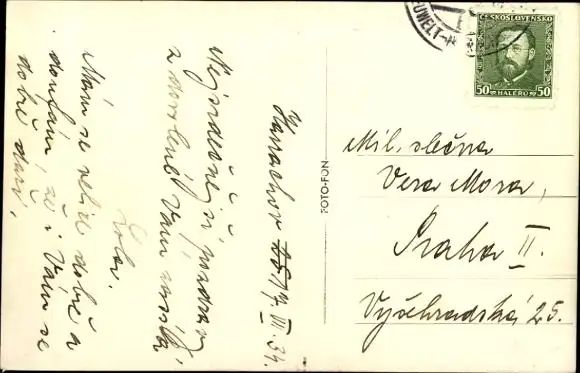 Harrachov 17. VII. 34.
Nejsrdečnější pozdrav
z dovolené Vám zasílá
Mám se velice dobře a
doufám, že i Vám se
dobře daří.
FOTO-FON
NEUWELT-
ČESKOSLOVENSKO
50 HALÉŘŮ 50
Mil. slečna
Vera Mora,
Praha II.
Vyšehradská 25.